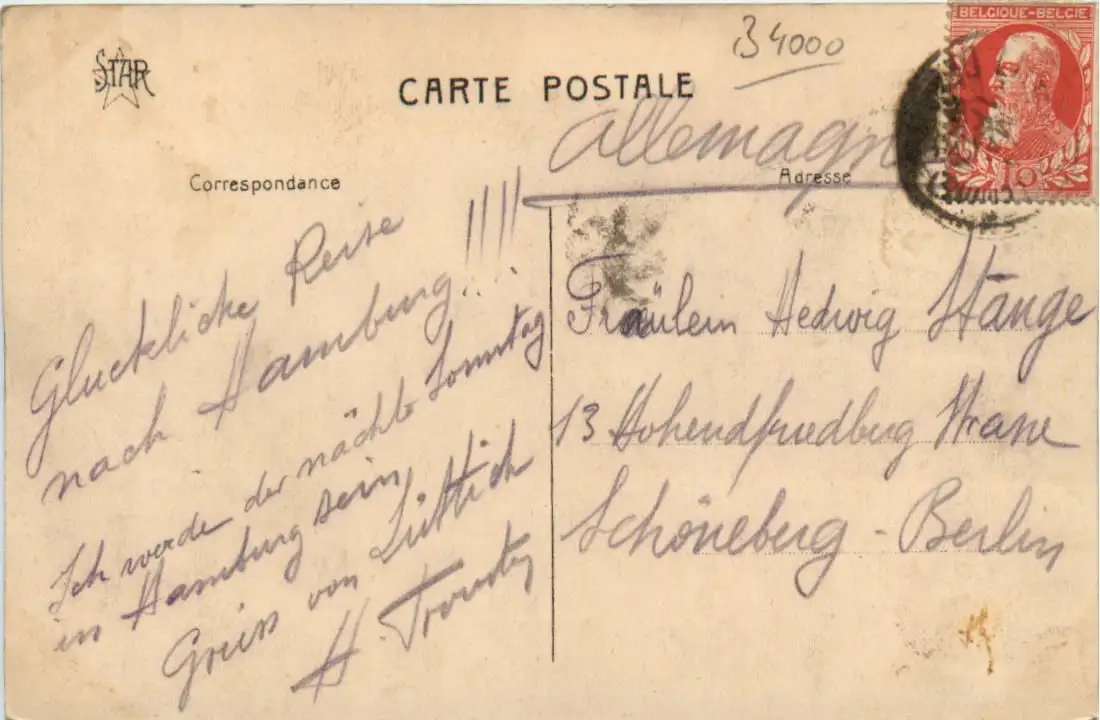 STAR
B 4000
BELGIQUE-BELGIE
10
CARTE POSTALE
Allemagne
Correspondance
Adresse
Gluckliche Reise
nach Hamburg!!!!
Ich werde der nächte Sonntag
in Hamburg sein
Gruss von Lüttich
H.
Fräulein Hedwig Stange
13 Hohenfriedberg
Schöneberg - Berlin